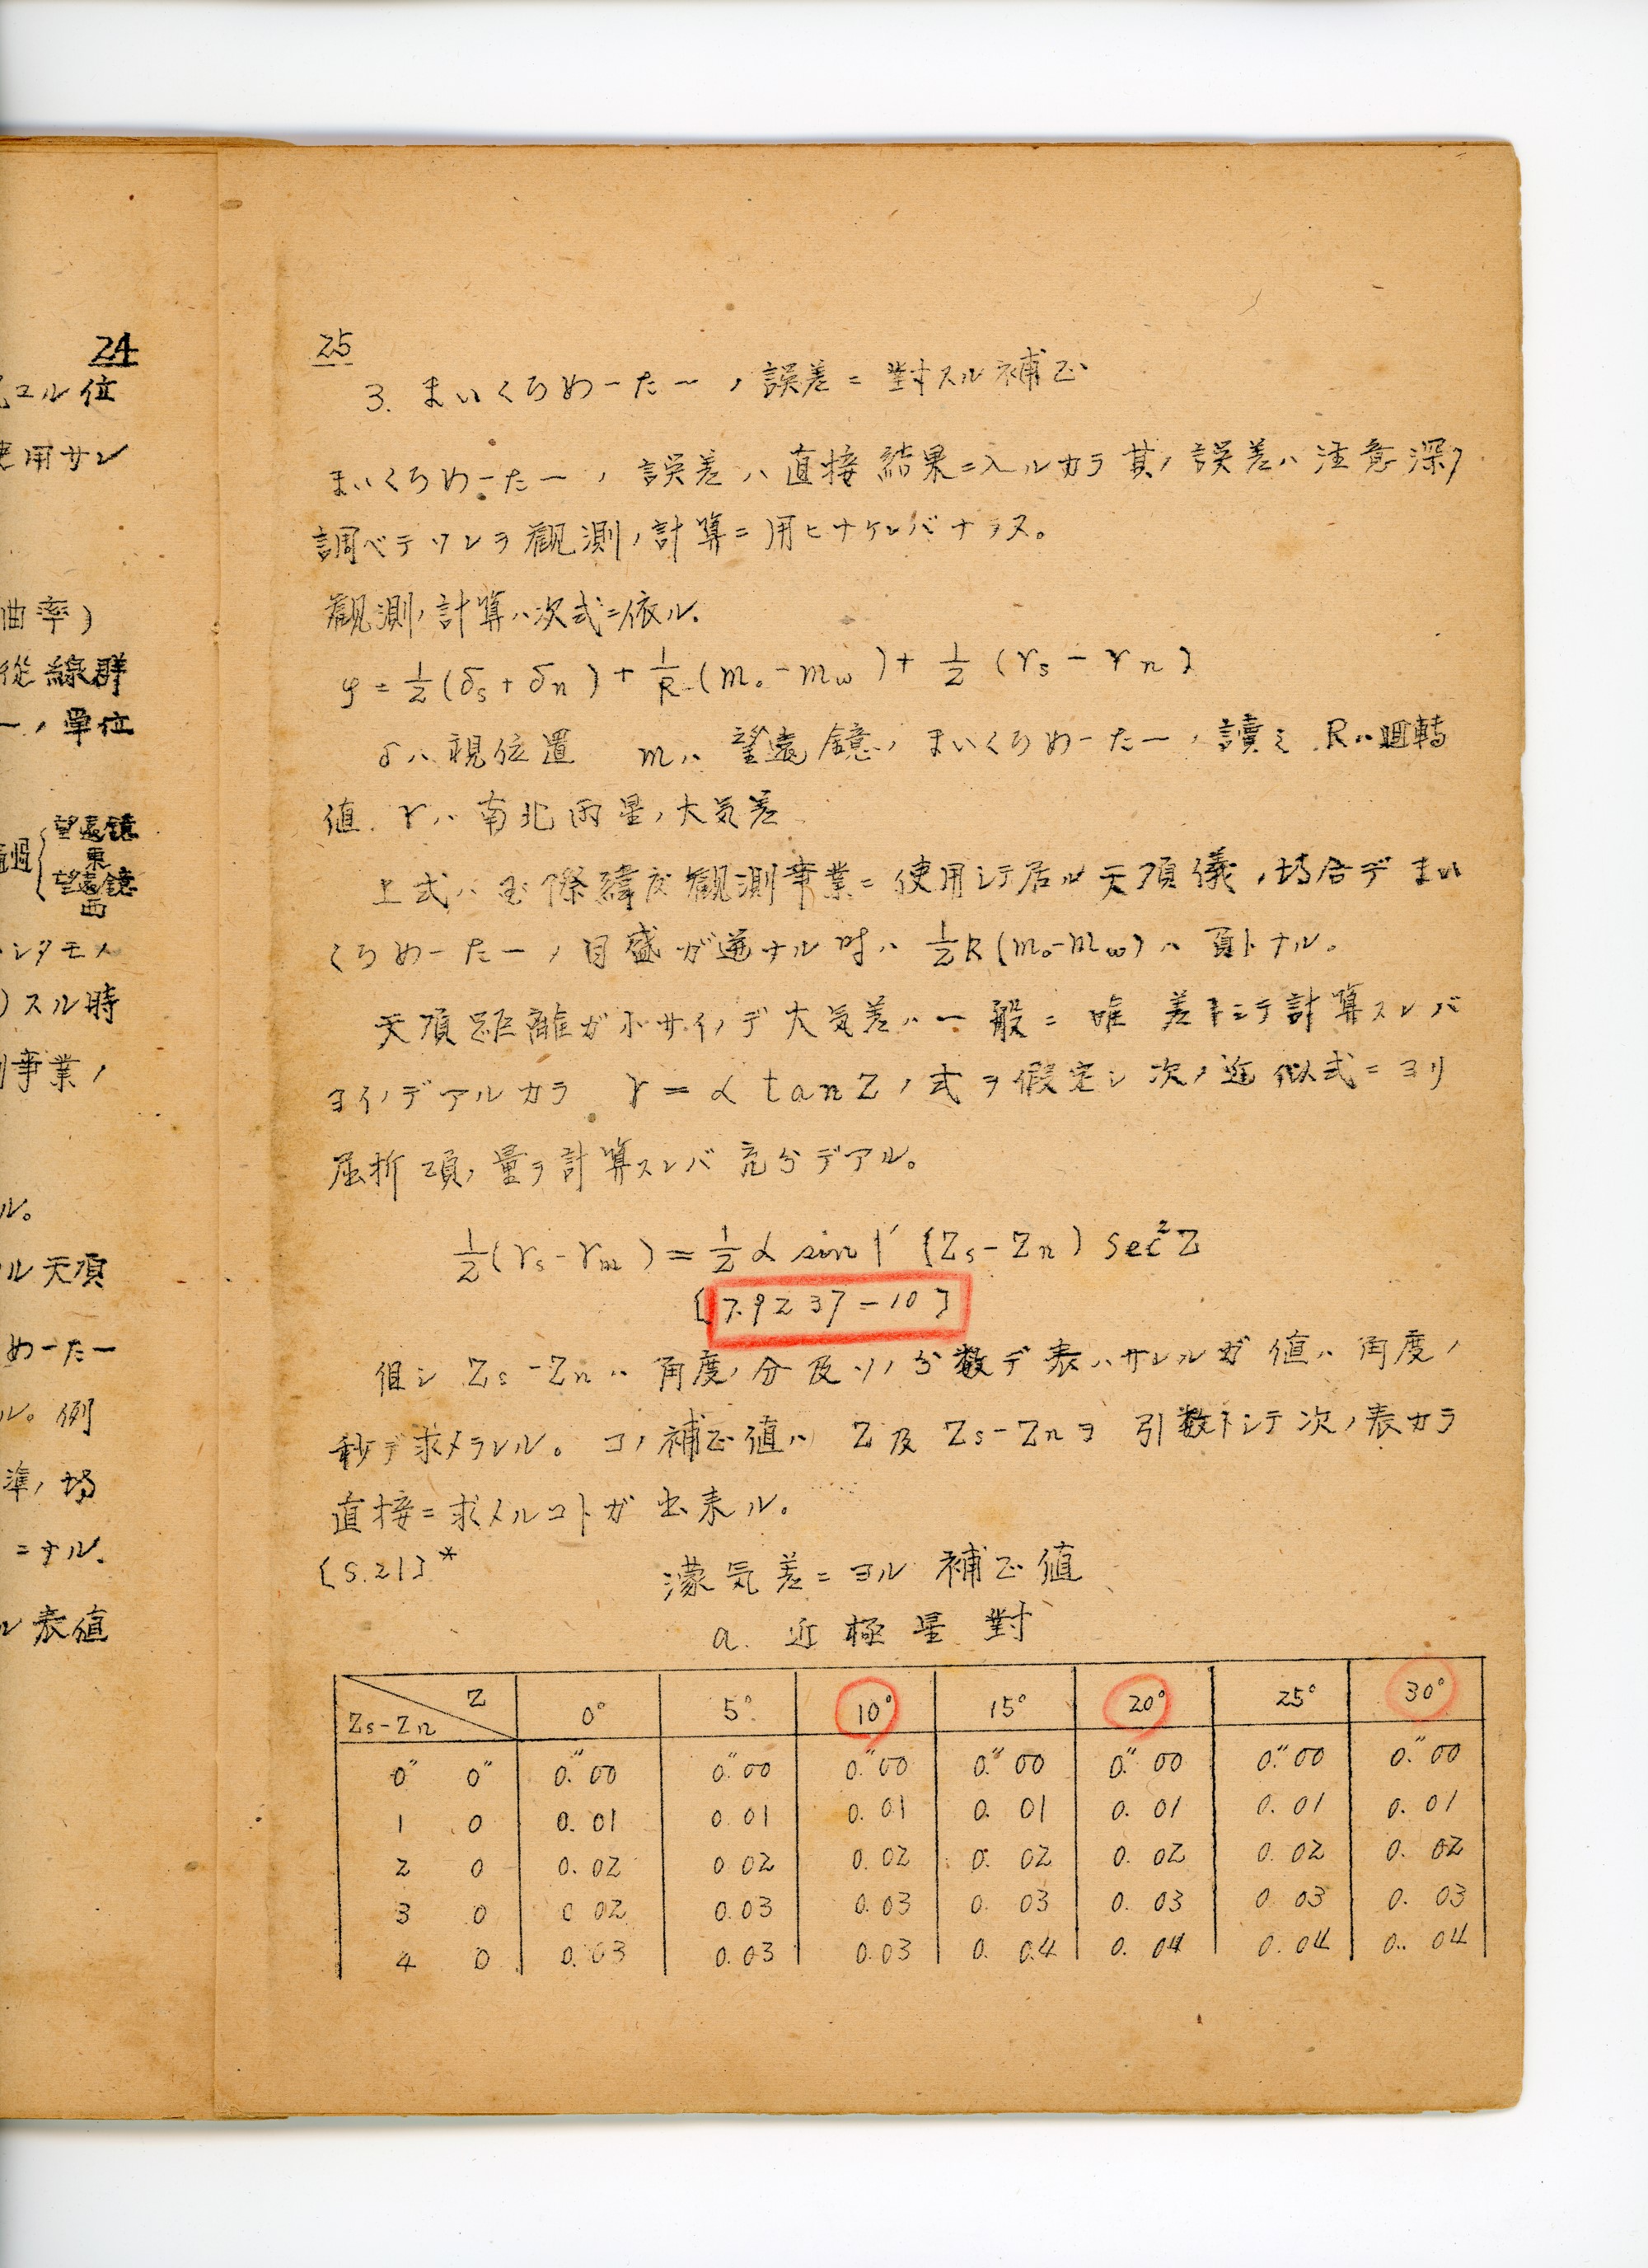 24
コル位
使用サレ
曲率)
從線群
ー,單位
望遠鏡
東
望遠鏡
西
シタモノ
)スル時
事業ノ
ル。
ル天頂
めーたー
ル。例
準ノ場
ニナル.
ル表値
25
3. まいくろめーたーノ誤差ニ對スル補正
まいくろめーたーノ誤差ハ直接結果ニ入ルカラ其ノ誤差ハ注意深ク
調ベテソレヲ觀測ノ計算ニ用ヒナケレバナラヌ。
觀測ノ計算ハ次式ニ依ル.
φ = 1/2 (δs + δn) + 1/R (m。- mw) + 1/2 (rs - rn)
δハ視位置 mハ望遠鏡ノまいくろめーたーノ讀ミ Rハ廻轉
値. rハ南北兩星ノ大気差
上式ハ國際緯度觀測事業ニ使用シテ居ル天頂儀ノ場合デまい
くろめーたーノ目盛ガ逆ナル時ハ 1/2 R (m。- mw) ハ負トナル。
天頂距離ガ小サイノデ大気差ハ一般ニ唯差トシテ計算スレバ
ヨイノデアルカラ r = α tan Z ノ式ヲ假定シ次ノ近似式ニヨリ
屈折項ノ量ヲ計算スレバ充分デアル。
1/2 (rs - rm) = 1/2 α sin 1′ (Zs - Zn) sec² Z
[7.9237-10]
但シ Zs - Zn ハ角度ノ分及ソノ分數デ表ハサレルガ値ハ角度ノ
秒デ求メラレル。コノ補正値ハ Z及 Zs - Zn ヲ引數トシテ次ノ表カラ
直接ニ求メルコトガ出来ル。
[S.21]*
濛気差ニヨル補正値
a. 近極星對
Z
Zs - Zn 0° 5° 10° 15° 20° 25° 30°
0″ 0″ 0.″00 0.″00 0.″00 0.″00 0.″00 0.″00 0.″00
1 0 0.01 0.01 0.01 0.01 0.01 0.01 0.01
2 0 0.02 0.02 0.02 0.02 0.02 0.02 0.02
3 0 0.02 0.03 0.03 0.03 0.03 0.03 0.03
4 0 0.03 0.03 0.03 0.04 0.04 0.04 0.04